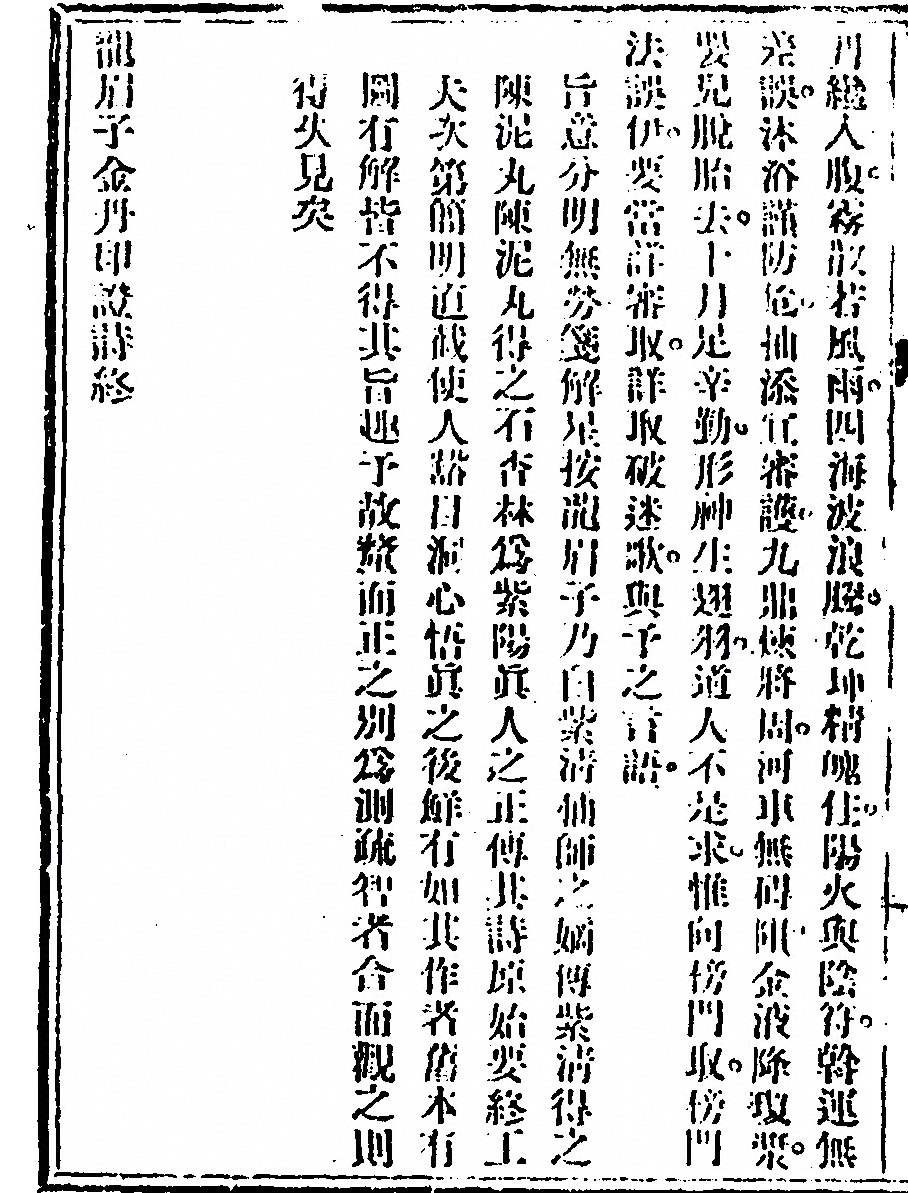 丹繼入腹霧散若風雨四海波浪騰乾坤精魄住陽火與陰符斡運無
差誤沐浴謹防危抽添宜審護九鼎煉將周河車無碍阻金液降瓊漿
嬰兒脫胎去十月是辛勤形神生翅羽道人不是求惟向傍門取傍門
法誤伊要當詳審取詳取破迷歌與予之言語
旨意分明無勞箋解是按龍眉子乃白紫清仙師之嫡傳紫清得之
陳泥丸陳泥丸得之石杏林爲紫陽眞人之正傳其詩原始要終工
夫次第簡明直截使人豁目洞心悟眞之後鮮有如其作者舊本有
圖有解皆不得其旨趣予故變而正之別爲測疏智者合而觀之則
得失見矣
龍眉子金丹印證詩終